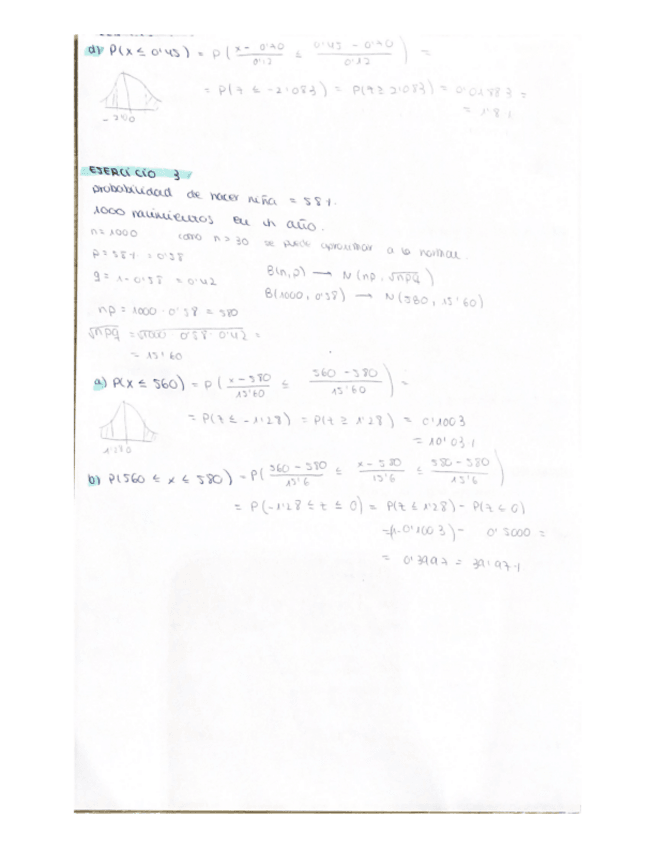 d) P(x ≤ 0'45) = P( x - 0'40 / 0'12 ≤ 0'45 - 0'40 / 0'12 ) =
= P(z ≤ -2'083) = P(z ≥ 2'083) = 0'01883 =
= 1'8%
EJERCICIO 3
probabilidad de nacer niña = 58%.
1000 nacimientos en un año.
n = 1000 como n > 30 se puede aproximar a la normal.
p = 58% = 0'58
q = 1 - 0'58 = 0'42
B(n,p) → N(np, √npq)
B(1000, 0'58) → N(580, 15'60)
np = 1000 · 0'58 = 580
√npq = √1000 · 0'58 · 0'42 =
= 15'60
a) P(x ≤ 560) = P( x - 580 / 15'60 ≤ 560 - 580 / 15'60 ) =
= P(z ≤ -1'28) = P(z ≥ 1'28) = 0'1003
= 10'03%
b) P(560 ≤ x ≤ 580) = P( 560 - 580 / 15'6 ≤ x - 580 / 15'6 ≤ 580 - 580 / 15'6 )
= P(-1'28 ≤ z ≤ 0) = P(z ≤ 1'28) - P(z ≤ 0)
=(1-0'1003) - 0'5000 =
= 0'3997 = 39'97%